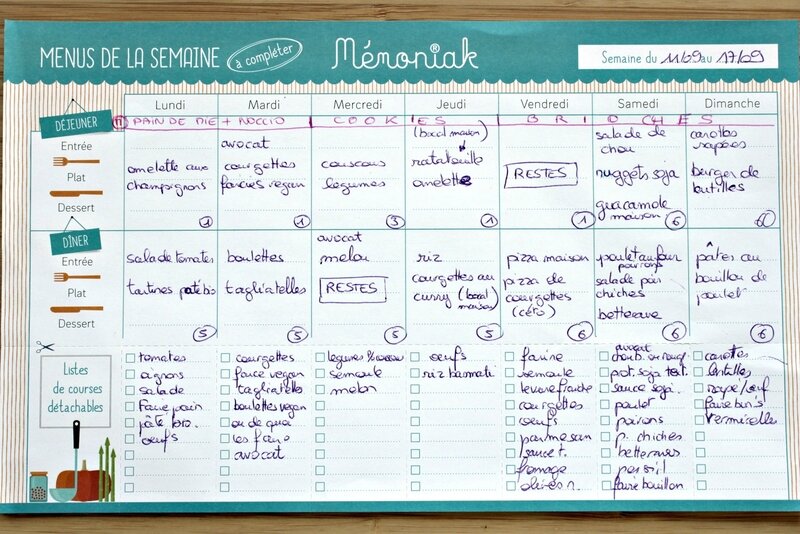 MENUS DE LA SEMAINE à compléter Ménoniak®
Semaine du 11/09 au 17/09
Lundi Mardi Mercredi Jeudi Vendredi Samedi Dimanche
DÉJEUNER
PAIN DE MIE + ROCCIO COOKIES BRIOCHES
Entrée
Plat
Dessert
omelette aux
champignons
1
avocat
courgettes
farcies vegan
1
couscous
légumes
3
(bocal maison)
ratatouille
omelette
1
RESTES
1
salade de
chou
nuggets soja
guacamole
maison
6
carottes
rapées
burger de
lentilles
DÎNER
Entrée
Plat
Dessert
salade tomates
tartines pâté bio
5
boulettes
tagliatelles
5
avocat
melon
RESTES
riz
courgettes au
curry (bocal
maison)
5
pizza maison
pizza de
courgettes
(céto)
6
poulet au four
poivrons
salade pois
chiches
betterave
6
pâtes au
bouillon de
poulet
6
Listes
de courses
détachables
tomates
oignons
salade
Faire pain
pâté bio.
oeufs
courgettes
farce vegan
tagliatelles
boulettes vegan
ou de quoi
les faire
avocat
légumes
semoule
melon
oeufs
riz basmati
farine
semoule
levure fraîche
courgettes
oeufs
parmesan
sauce t.
fromage
olives n.
avocat
chou
pot. soja text.
sauce soja.
poulet
poivrons
p. chiches
betteraves
persil
faire bouillon
carottes
lentilles
faire bun's
vermicelles